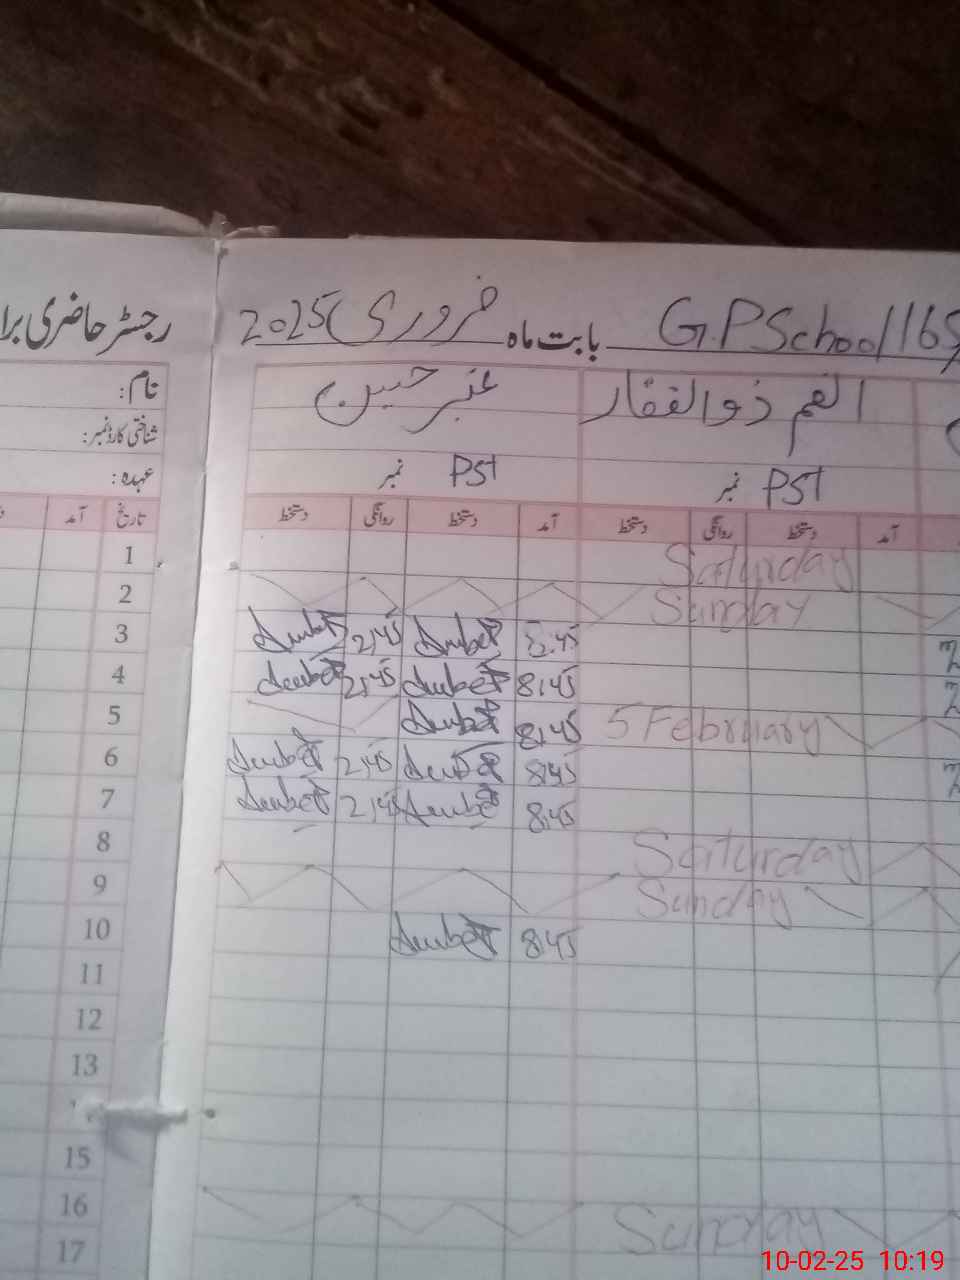 رجسٹر حاضری برا
بابت ماہ فروری 2025
G.P School 165
نام:
شناختی کارڈ نمبر:
عہدہ:
عنبر حسین
ذوالفقار
PST نمبر
PST نمبر
تاریخ آمد
آمد دستخط روانگی دستخط
آمد دستخط روانگی دستخط
1 Saturday
2 Sunday
3 8:45 2:45
4 8:45 2:45
5 8:45 5 February
6 8:45 2:45
7 8:45 2:45
8 Saturday
9 Sunday
10 8:45
11
12
13
15
16 Sunday
17
10-02-25 10:19